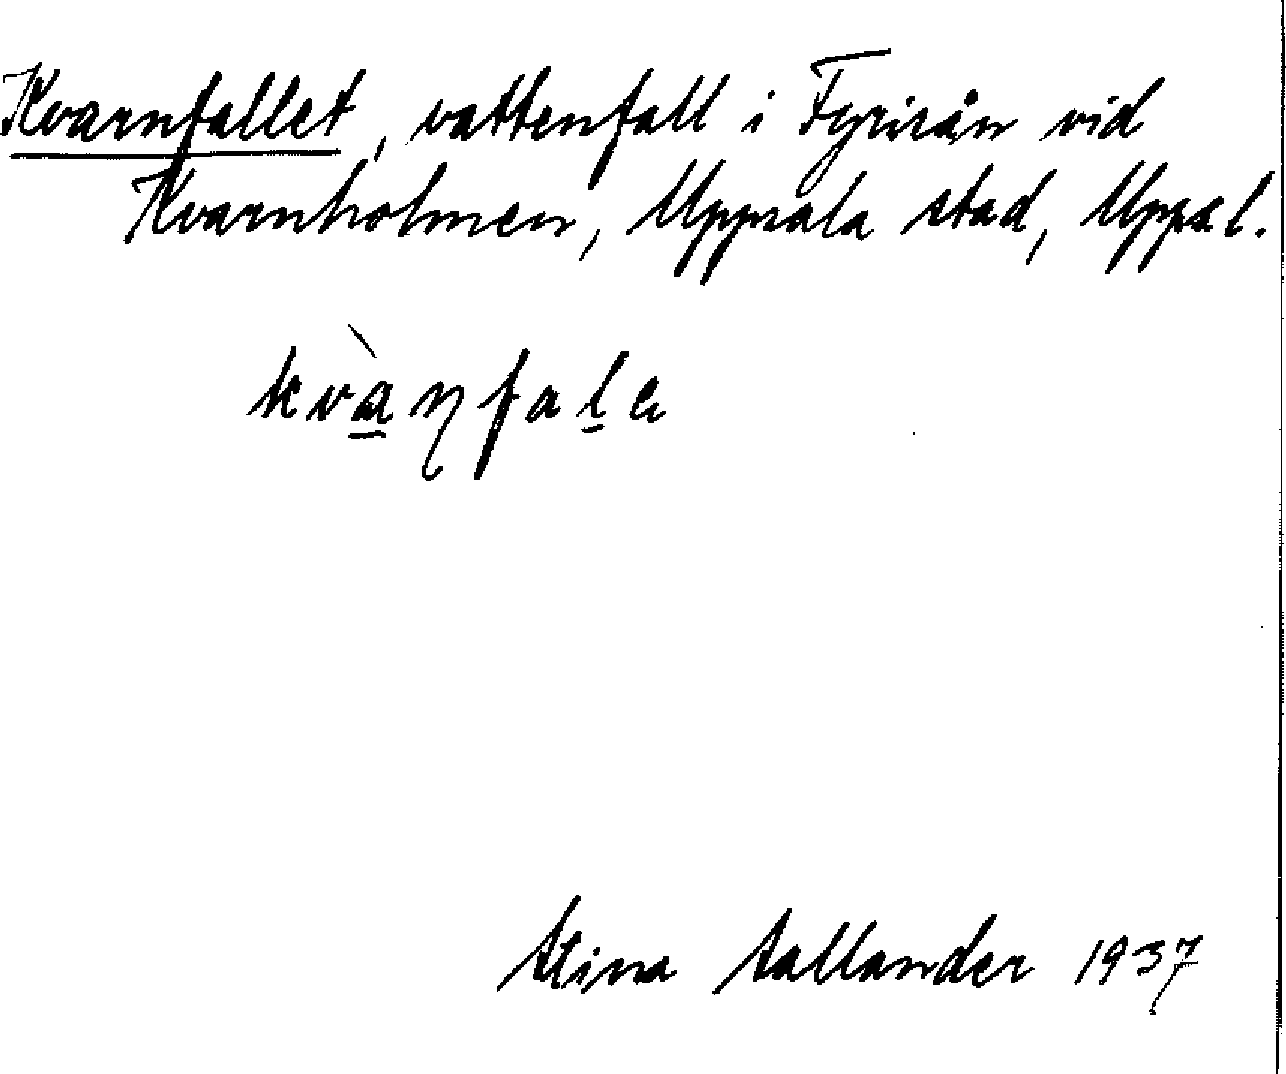 Kvarnfallet, vattenfall i Fyrisån vid
Kvarnholmen, Uppsala stad, Uppsl.
kvà̲ɳfal̲e
Stina Sallander 1937